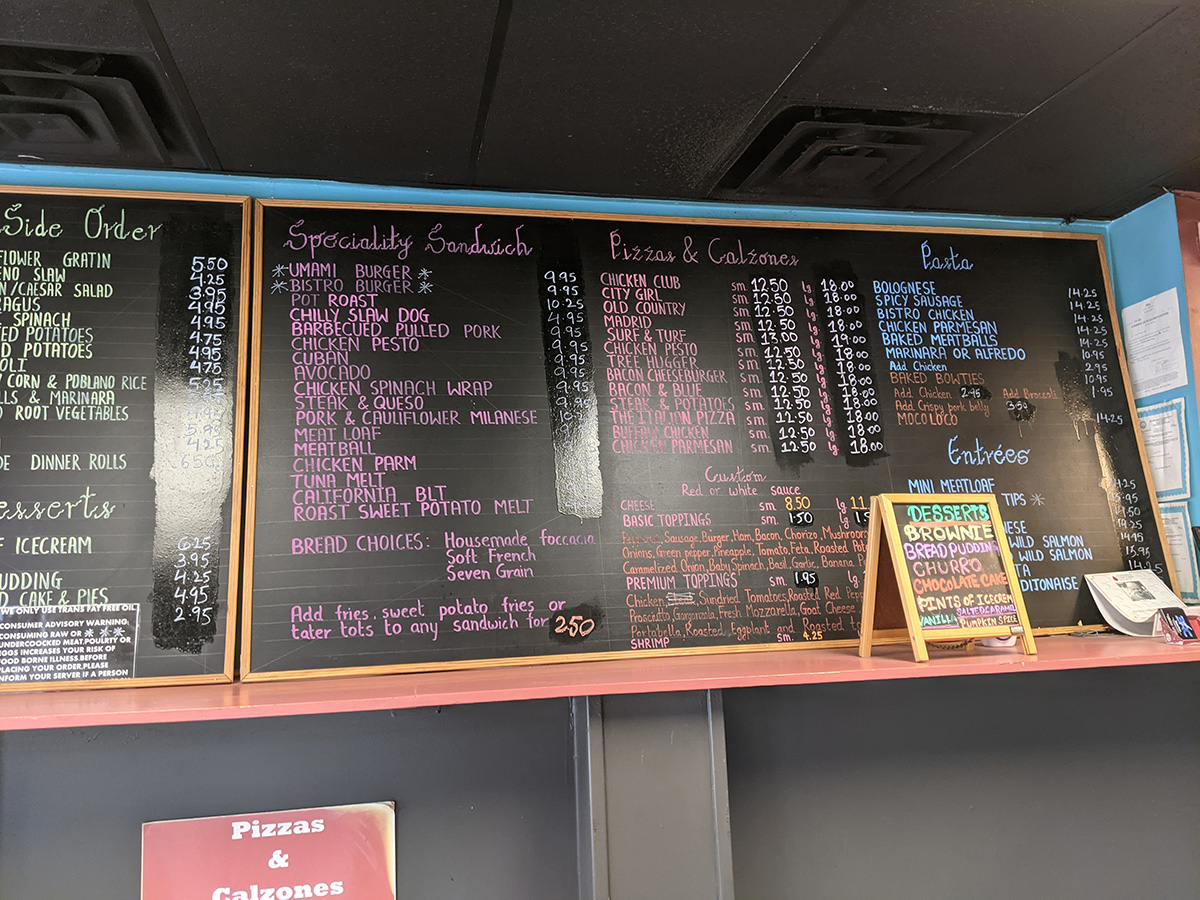 Side Order
FLOWER GRATIN 5.50
SLAW 4.25
/CAESAR SALAD 3.95
4.95
SPINACH 4.95
POTATOES 4.75
POTATOES 4.95
4.75
CORN & POBLANO RICE
& MARINARA 5.25
ROOT VEGETABLES
5.95
4.25
DINNER ROLLS .65¢
Desserts
ICECREAM 6.25
3.95
PUDDING 4.25
CAKE & PIES 4.95
2.95
WE ONLY USE TRANS FAT FREE OIL
CONSUMER ADVISORY WARNING:
CONSUMING RAW OR ***
UNDERCOOCKED MEAT.POULTRY OR
EGGS INCREASES YOUR RISK OF
FOOD BORNE ILLNESS.BEFORE
PLACING YOUR ORDER.PLEASE
INFORM YOUR SERVER IF A PERSON
Speciality Sandwich
*UMAMI BURGER* 9.95
*BISTRO BURGER* 9.95
POT ROAST 10.25
CHILLY SLAW DOG 4.95
BARBECUED PULLED PORK 9.95
CHICKEN PESTO 9.95
CUBAN 9.95
AVOCADO 9.95
CHICKEN SPINACH WRAP 9.95
STEAK & QUESO
PORK & CAULIFLOWER MILANESE
MEAT LOAF
MEATBALL
CHICKEN PARM
TUNA MELT
CALIFORNIA BLT
ROAST SWEET POTATO MELT
BREAD CHOICES: Housemade foccacia
Soft French
Seven Grain
Add fries, sweet potato fries or
tater tots to any sandwich for 2.50
Pizzas & Calzones
CHICKEN CLUB sm. 12.50 lg 18.00
CITY GIRL sm. 12.50 lg 18.00
OLD COUNTRY sm. 12.50 lg 18.00
MADRID sm. 12.50 lg 18.00
SURF & TURF sm. 13.00 lg 19.00
CHICKEN PESTO sm. 12.50 lg 18.00
TREE HUGGER sm. 12.50 lg 18.00
BACON CHEESEBURGER sm. 12.50 lg 18.00
BACON & BLUE sm. 12.50 lg 18.00
STEAK & POTATOES sm. 12.50 lg 18.00
THE ITALIAN PIZZA sm. 12.50 lg 18.00
BUFFALO CHICKEN sm. 12.50 lg 18.00
CHICKEN PARMESAN sm. 12.50 lg 18.00
Custom
Red or white sauce
CHEESE sm. 8.50 lg 11.
BASIC TOPPINGS sm. 1.50 lg
Sausage, Burger, Ham, Bacon, Chorizo, Mushroom
Onions, Green pepper, Pineapple, Tomato, Feta, Roasted
Caramelized Onion, Baby Spinach, Basil, Garlic, Banana
PREMIUM TOPPINGS sm. 1.95 lg
Chicken, Sundried Tomatoes, Roasted Red
Prosciutto, Gorgonzola, Fresh Mozzarella, Goat Cheese
Portabella, Roasted Eggplant and Roasted
SHRIMP sm. 4.25
Pasta
BOLOGNESE 14.25
SPICY SAUSAGE 14.25
BISTRO CHICKEN 14.25
CHICKEN PARMESAN 14.25
BAKED MEATBALLS 14.25
MARINARA OR ALFREDO 10.95
Add Chicken 2.95
BAKED BOWTIES 10.95
Add Chicken 2.95 Add Broccoli 1.95
Add Crispy pork belly 3.50
MOCO LOCO 14.25
Entrées
MINI MEATLOAF
TIPS*
WILD SALMON
WILD SALMON
DESSERTS
BROWNIE
BREAD PUDDING
CHURRO
CHOCOLATE CAKE
PINTS OF ICECREAM
VANILLA SALTED CARAMEL
PUMPKIN SPICE
Pizzas
&
Calzones